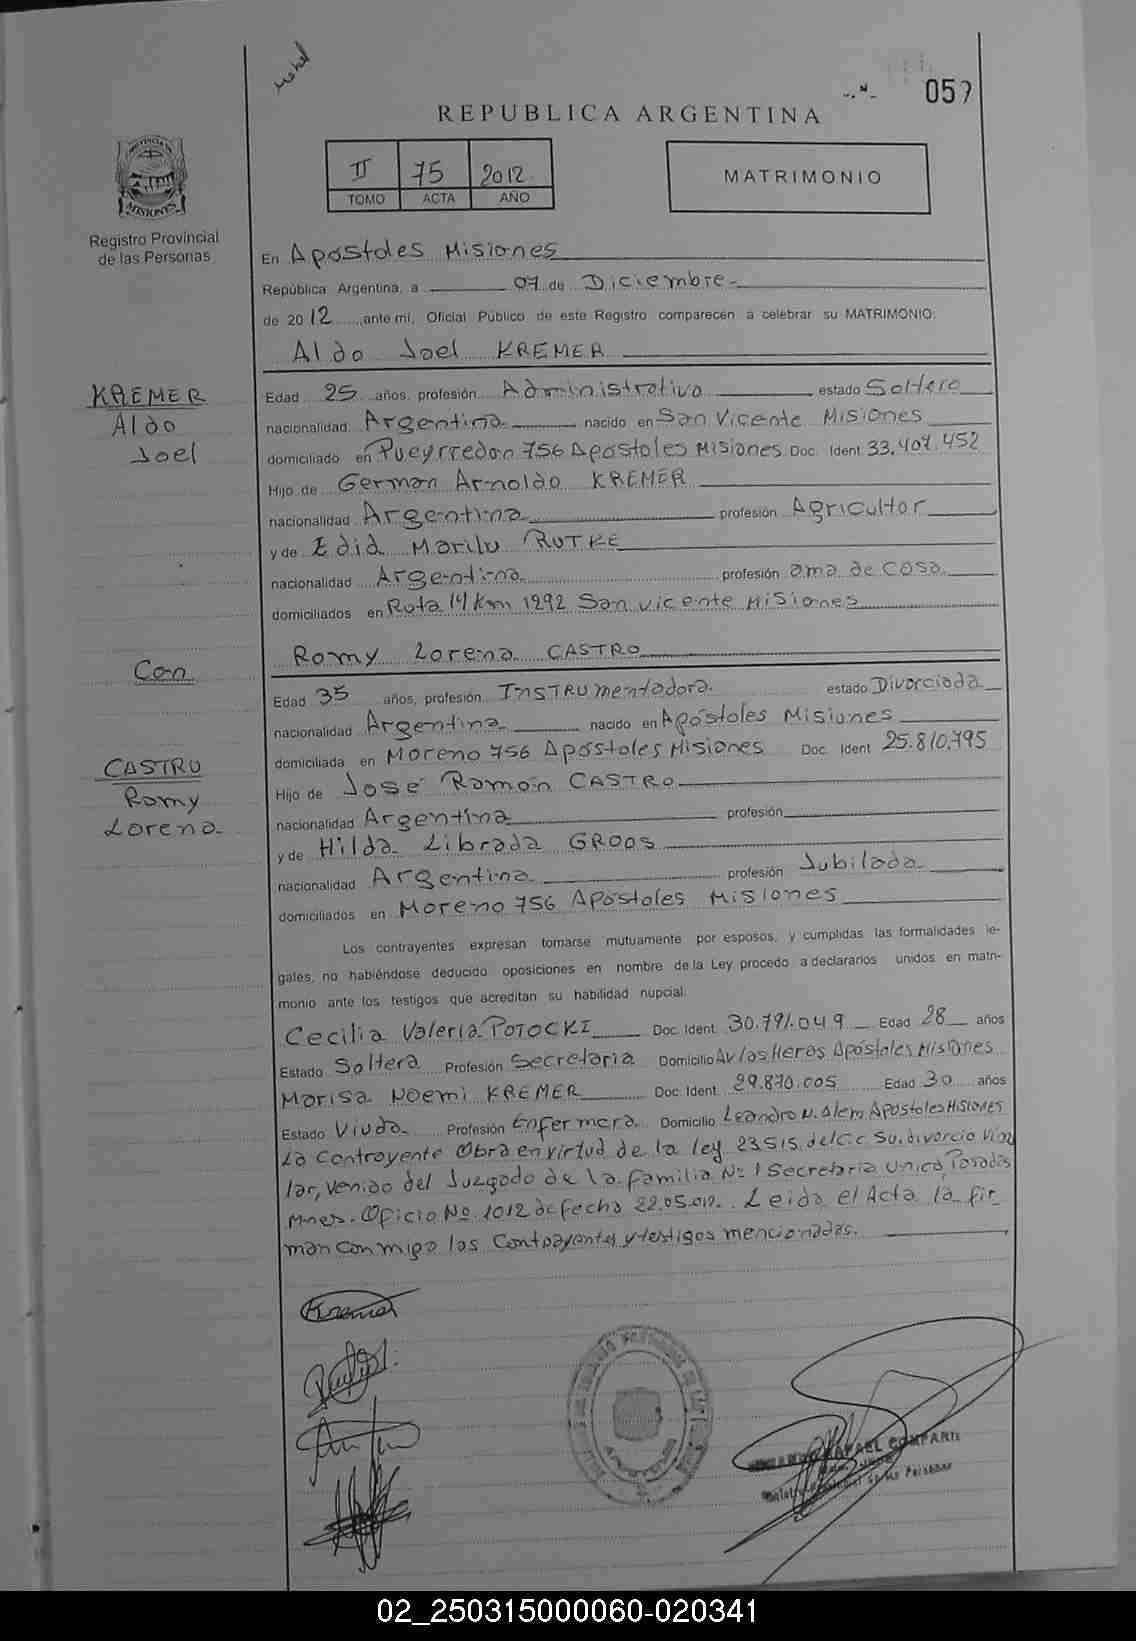 057
REPUBLICA ARGENTINA
II 75 2012
TOMO ACTA AÑO
MATRIMONIO
PROVINCIA DE
MISIONES
Registro Provincial
de las Personas
En Apóstoles Misiones
República Argentina, a 07 de Diciembre
de 2012, ante mí, Oficial Público de este Registro comparecen a celebrar su MATRIMONIO:
Aldo Joel KREMER
KREMER
Aldo
Joel
Edad 25 años, profesión Administrativo estado Soltero
nacionalidad Argentina nacido en San Vicente Misiones
domiciliado en Pueyrredon 756 Apóstoles Misiones Doc. Ident 33.407.452
Hijo de German Arnoldo KREMER
nacionalidad Argentina profesión Agricultor
y de Edid Marilu RUTKE
nacionalidad Argentina profesión ama de casa
domiciliados en Ruta 14 Km 1292 San Vicente Misiones
Con
Romy Lorena CASTRO
Edad 35 años, profesión Instrumentadora. estado Divorciada
nacionalidad Argentina nacido en Apóstoles Misiones
domiciliada en Moreno 756 Apóstoles Misiones Doc. Ident 25.810.795
CASTRO
Romy
Lorena
Hijo de José Ramón CASTRO
nacionalidad Argentina profesión
y de Hilda Librada GROOS
nacionalidad Argentina profesión Jubilada
domiciliados en Moreno 756 Apóstoles Misiones
Los contrayentes expresan tomarse mutuamente por esposos, y cumplidas las formalidades le-
gales, no habiéndose deducido oposiciones en nombre de la Ley procedo a declararlos unidos en matri-
monio ante los testigos que acreditan su habilidad nupcial:
Cecilia Valeria POTOCKI Doc. Ident. 30.791.049 Edad 28 años
Estado Soltera Profesión Secretaria Domicilio Av las Heras Apóstoles Misiones
Marisa Noemi KREMER Doc. Ident. 29.870.005 Edad 30 años
Estado Viuda Profesión Enfermera Domicilio Leandro N. Alem Apóstoles Misiones
La Contrayente Obra en virtud de la ley 23.515 del C.C su divorcio Vincu
lar, venido del Juzgado de la familia Nº 1 Secretaria Unica, Posadas
Mnes. Oficio Nº 1012 de fecha 22.05.012. Leida el Acta la fir_
man conmigo los Contrayentes y testigos mencionados.
Kremer
RAFAEL COMPARIN
02_250315000060-020341